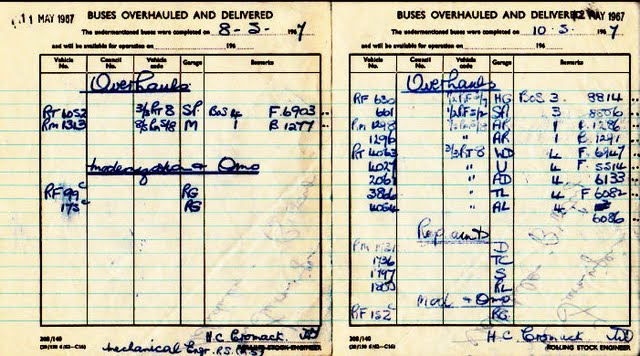 11 MAY 1967
BUSES OVERHAULED AND DELIVERED
The undermentioned buses were completed on 8-5- 1967
and will be available for operation on 196
Vehicle No. Council No. Vehicle code. Garage Remarks
Overhauls
RT 4052 3/3RT8 SP BoS 4 F.6903
RM 1343 M 1 B 1277
& Omo
RF 99c RG
175c RG
200/140
H.C. Cromack
ROLLING STOCK ENGINEER
Mechanical Engr.
12 MAY 1967
BUSES OVERHAULED AND DELIVERED
The undermentioned buses were completed on 10-5- 1967
and will be available for operation on 196
Vehicle No. Council No. Vehicle code. Garage Remarks
Overhauls
RF 630 HG BoS 3. 8814
601 3 8606
RM 1298 AP 1 B.1286
1296 AR 1 B.1291
RT 4063 3/3RT8 WD 4 F.6947
4027 " U 4 F.5514
2061 " AD 4 6133
3866 " TL 4 F 6082
4054 " AL 4
6086
Repaints
RM 1731 D
1736 TC
1797 S
RL
Mod & Omo
RF 152c RG
200/140
H.C. Cromack
ROLLING STOCK ENGINEER